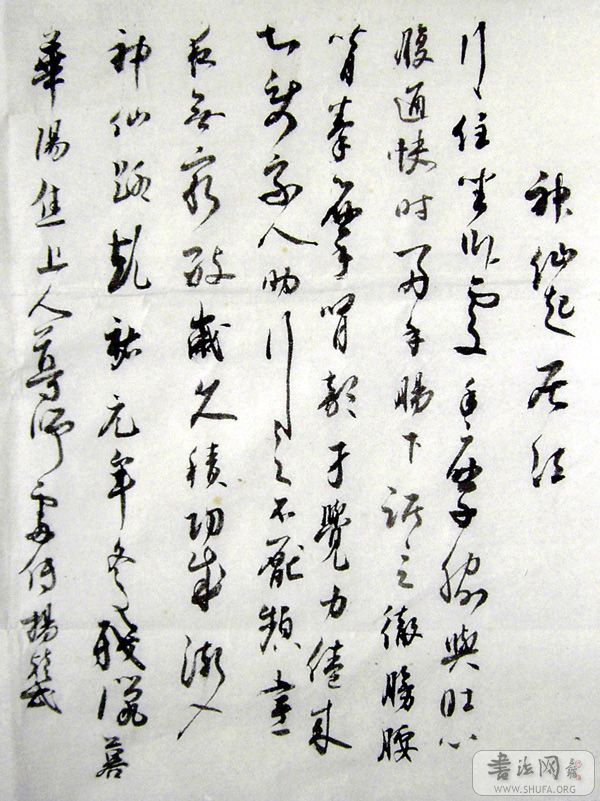 神仙起居法
行住坐臥處手摩脅與肚心
腹通快時兩手腸下踞之徹膀腰
背拳摩腎部才覺力倦來
即使家人助行之不厭頻晝
夜無窮數歲久積功成漸入
神仙路乾祐元年冬殘臘暮
華陽焦上人尊師處傳楊凝式
書法网
WWW.SHUFA.ORG